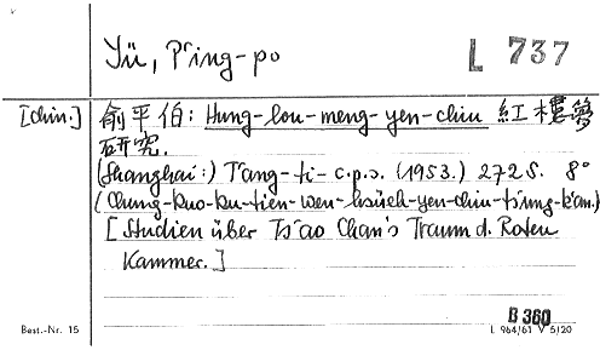 Yü, P'ing-po
L 737
[chin.] 俞平伯: Hung-lou-meng-yen-chiu 紅樓夢
研究.
(Shanghai:) T'ang-ti-c.p.s. (1953.) 272 S. 8°
(Chung-kuo-ku-tien-wen-hsüeh-yen-chiu-ts'ung-k'an.)
[Studien über Ts'ao Chan's Traum d. Roten
Kammer.]
B 360
Best.-Nr. 15
L 964/61 V 5/20